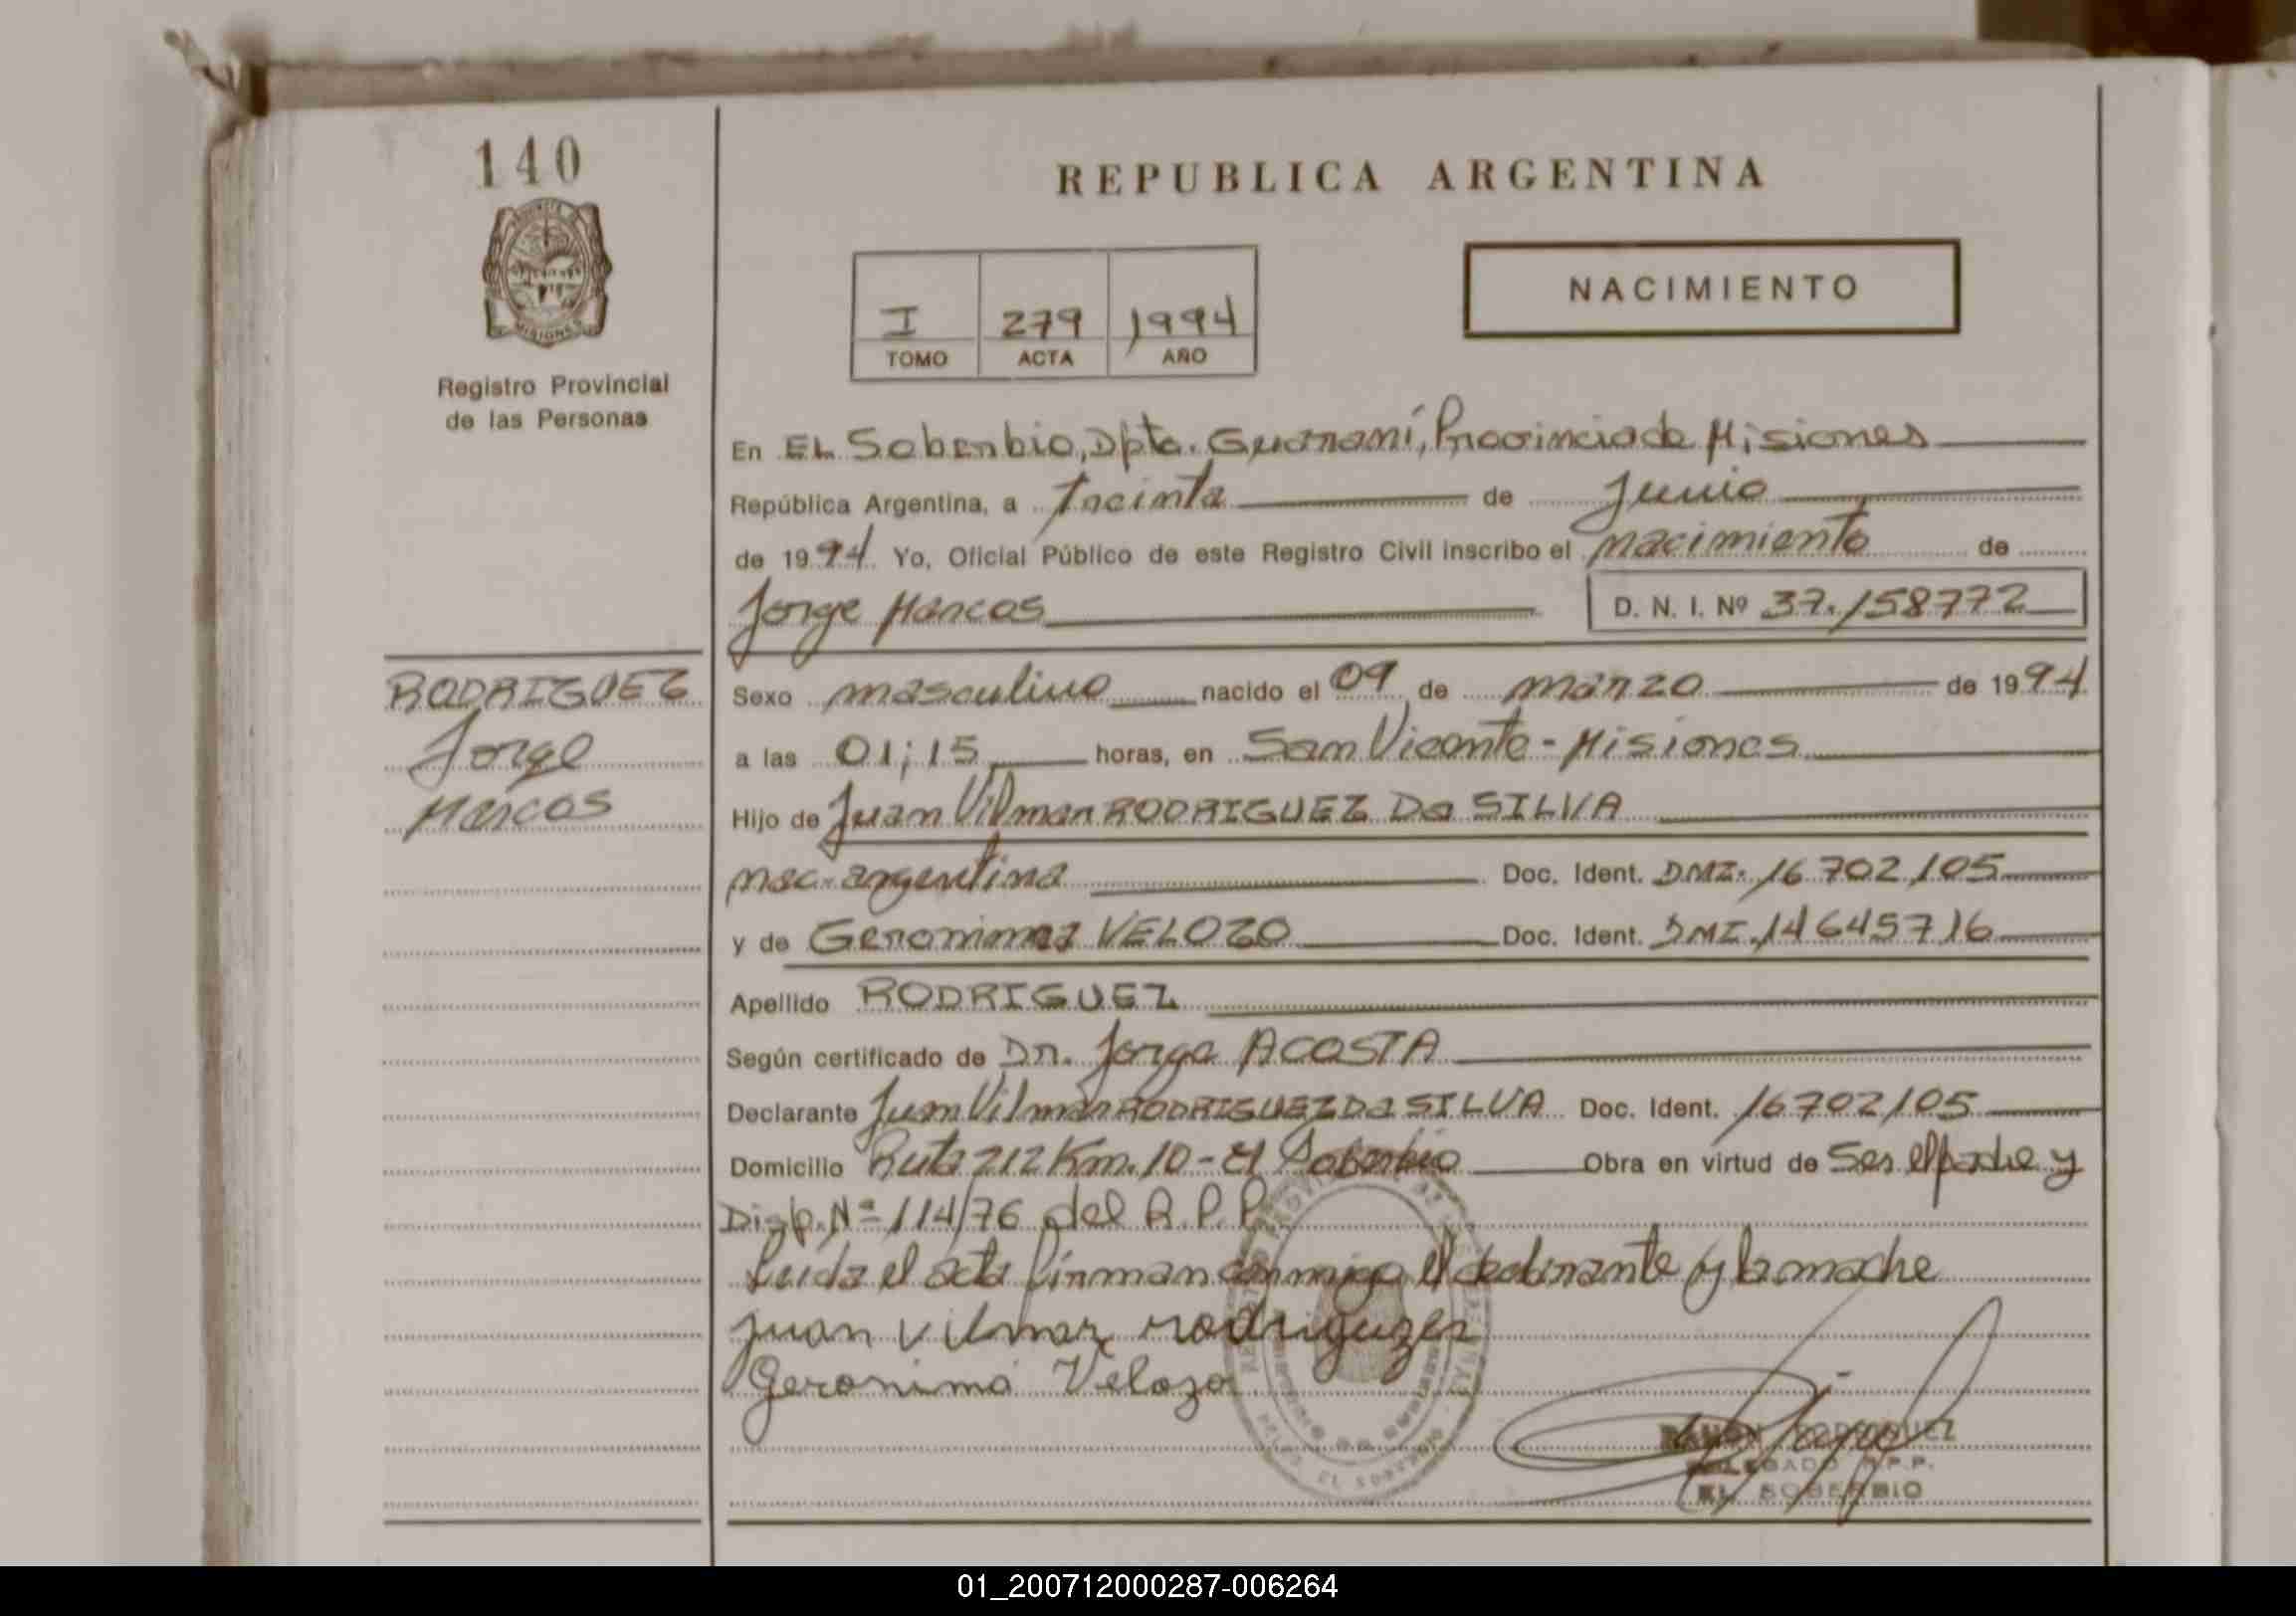 140
REPUBLICA ARGENTINA
NACIMIENTO
I 279 1994
TOMO ACTA AÑO
MISIONES
Registro Provincial
de las Personas
En EL Soberbio, Dpto. Guaraní, Provincia de Misiones
República Argentina, a Treinta de Junio
de 1994 Yo, Oficial Público de este Registro Civil inscribo el nacimiento de
Jorge Marcos D. N. I. Nº 37.158772
RODRIGUEZ
Jorge
Marcos
Sexo masculino nacido el 09 de marzo de 1994
a las 01;15 horas, en San Vicente - Misiones
Hijo de Juan Vilmar RODRIGUEZ Da SILVA
nac. argentina Doc. Ident. DNI. 16 702 105
y de Geronima VELOZO Doc. Ident. DNI. 14645716
Apellido RODRIGUEZ
Según certificado de Dr. Jorge ACOSTA
Declarante Juan Vilmar RODRIGUEZ Da SILVA Doc. Ident. 16702105
Domicilio Ruta 212 Km. 10 - El Soberbio Obra en virtud de Ser el padre y
Disp. Nº 114/76 del R.P.P.
Leida el acta firman conmigo el declarante y la madre
juan vilmar rodriguzes
Geronima Velozo
RAMON RODRIGUEZ
DELEGADO R.P.P.
EL SOBERBIO
01_200712000287-006264